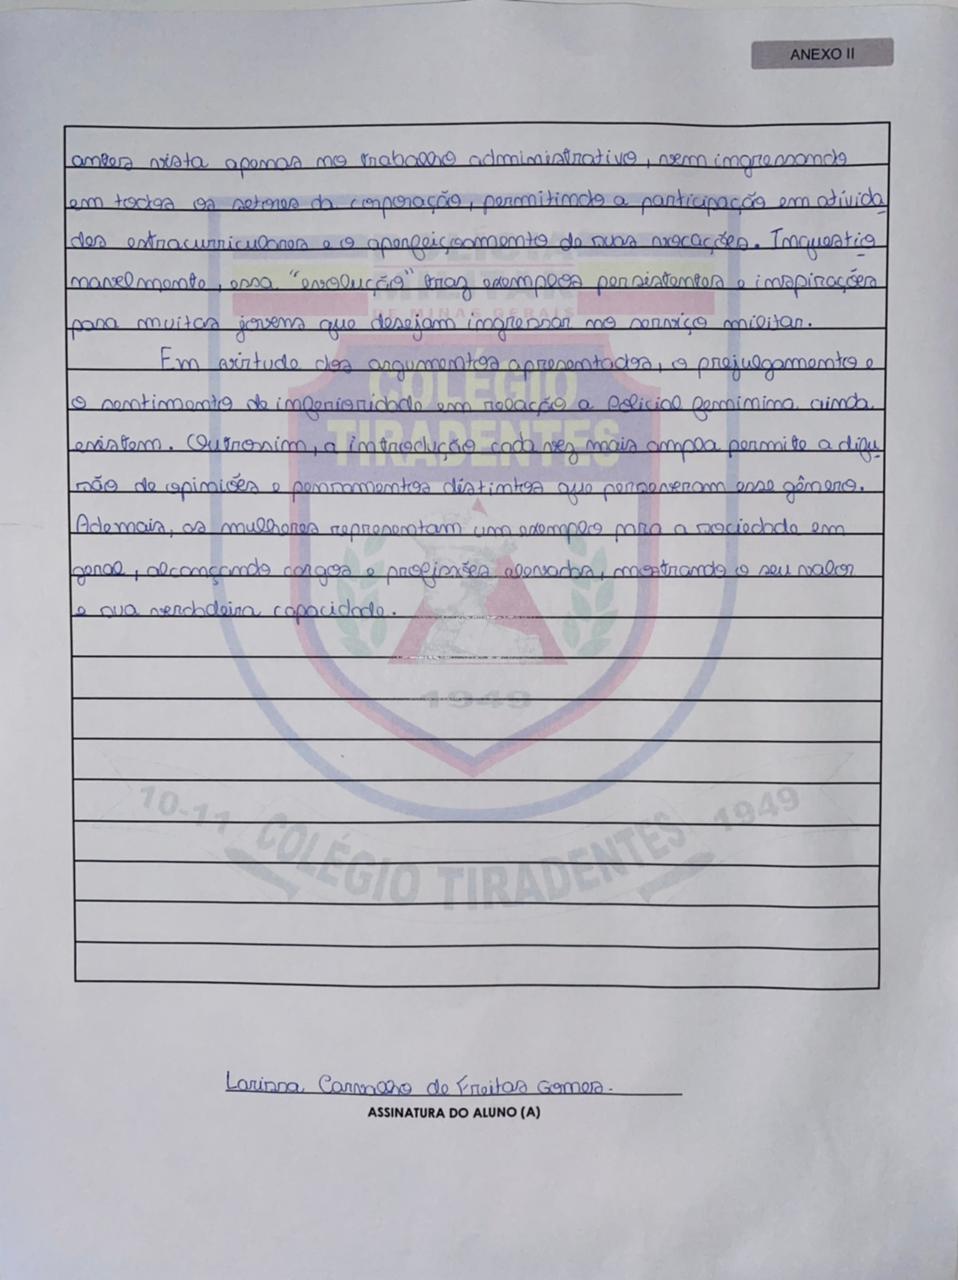 ANEXO II
antes vista apenas no trabalho administrativo, sem ingressando
em todos os setores da corporação, permitindo a participação em ativida
des extracurriculares e o aperfeiçoamento de suas vocações. Inquestio
navelmente, essa "evolução" traz exemplos persistentes e inspirações
para muitos jovens que desejam ingressar no serviço militar.
Em virtude dos argumentos apresentados, o prejulgamento e
o sentimento de inferioridade em relação a Policial feminina ainda
existem. Outrossim, a introdução cada vez mais ampla permite a difu
são de opiniões e pensamentos distintos que perseveram esse gênero.
Ademais, as mulheres representam um exemplo para a sociedade em
geral, alcançando cargos e profissões elevadas, mostrando o seu valor
e sua verdadeira capacidade.
POLÍCIA
MILITAR
DE MINAS GERAIS
COLÉGIO
TIRADENTES
1949
10-11 COLÉGIO TIRADENTES 1949
Larissa Carvalho de Freitas Gomes.
ASSINATURA DO ALUNO (A)